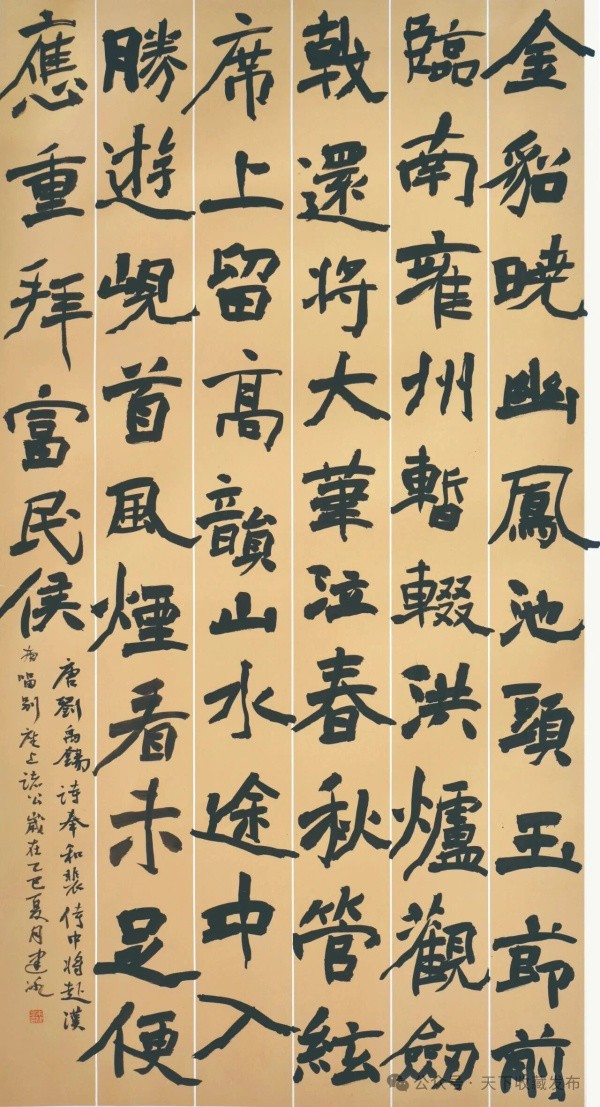 金貂曉幽鳳池頭玉節前
臨南雍州暫輟洪爐觀劒
戟還将大筆注春秋管絃
席上留高韻山水途中入
勝遊峴首風煙看未足便
應重拜富民侯
唐劉禹錫詩奉和裴侍中将赴漢
南留别座上諸公歲在乙巳夏月建
公众号·天下收藏发布